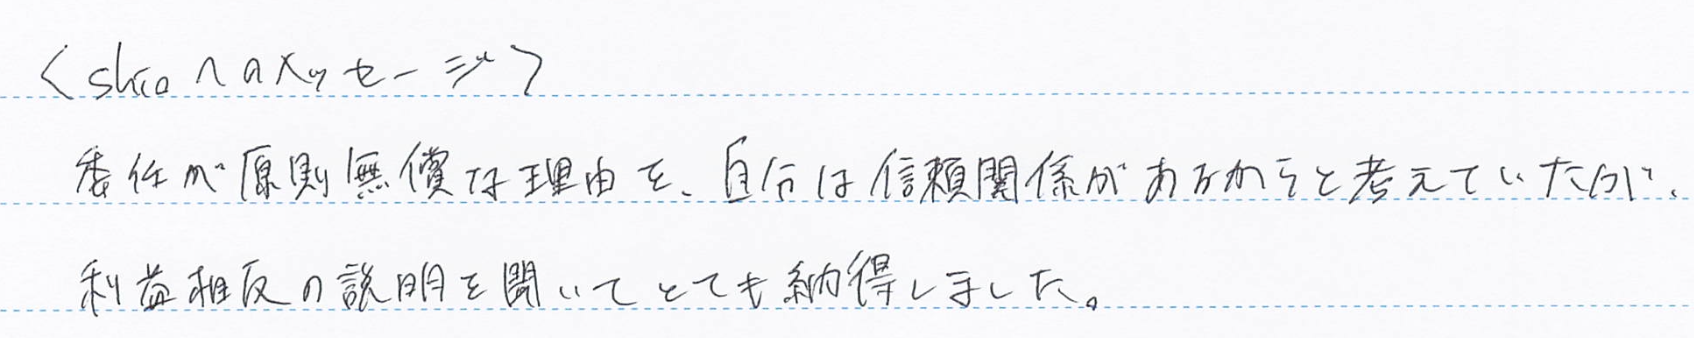 〈shioへのメッセージ〉
委任が原則無償な理由を、自分は信頼関係があるからと考えていたので、
利益相反の説明を聞いてとても納得しました。